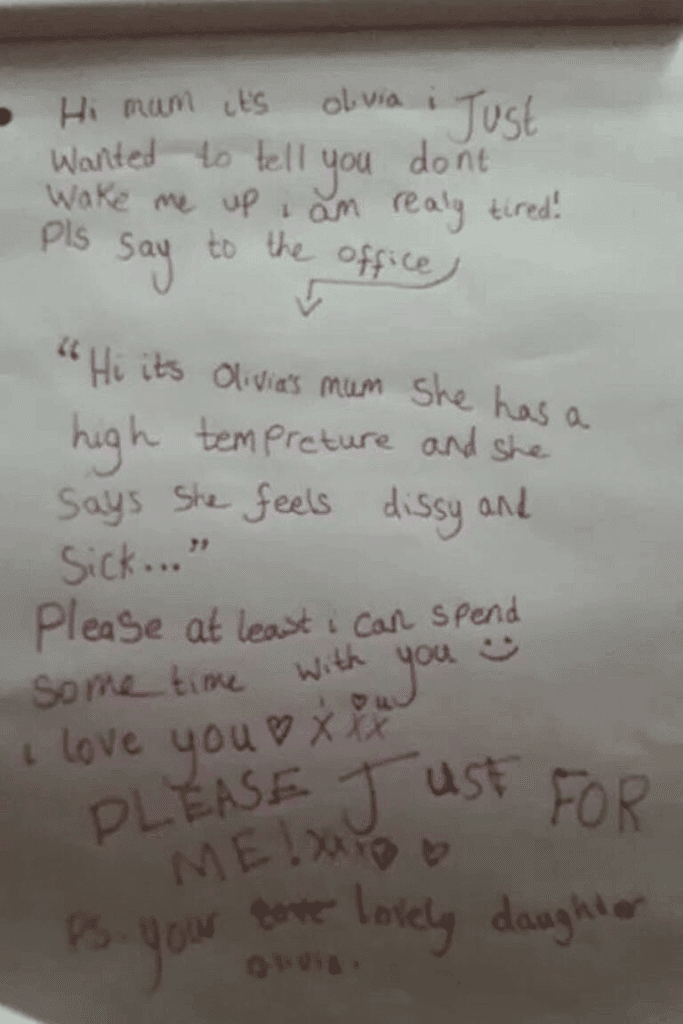 Hi mum it's olivia i Just
Wanted to tell you dont
wake me up i am realy tired!
Pls say to the office
"Hi its Olivia's mum She has a
high tempreture and she
Says She feels dissy and
Sick..."
Please at least i can spend
some time with you :)
i love you ♡ X X X
PLEASE JUST FOR
ME! xx ♡ ♡
Ps. your lovely daughter
olivia.